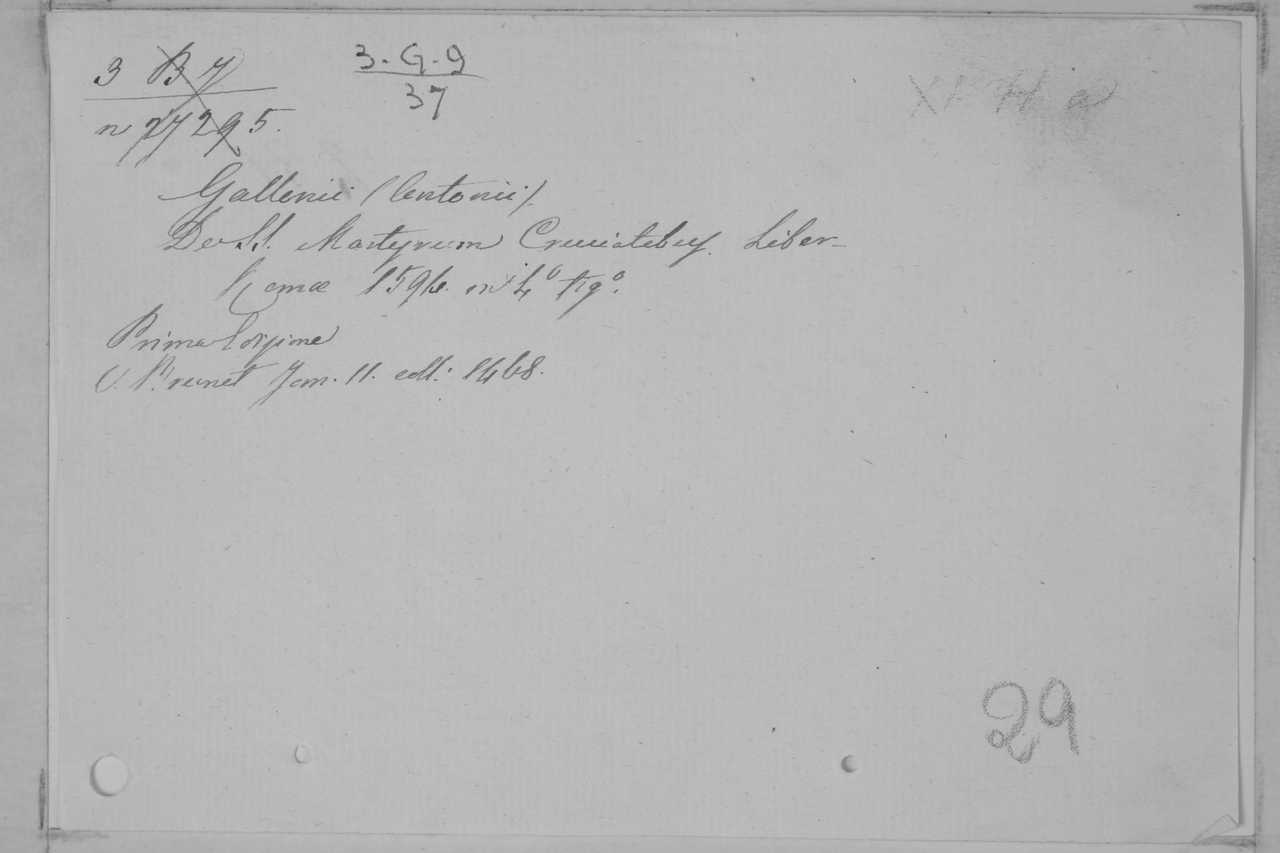 3 B 7
n 27295.
3-G-9
37
XI H a
Gallonii (Antonii).
De SS. Martyrum Cruciatibus. Liber
Romæ 1594. in 4° fig°.
Prima Edizione
V. Brunet Tom. II. coll: 1468.
29